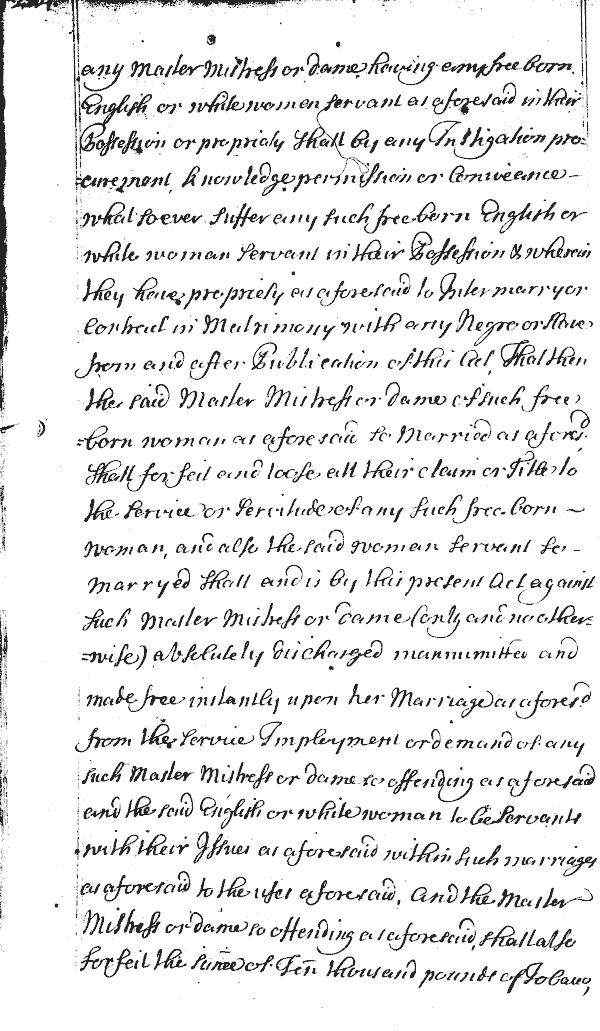 any Master Mistress or dame having any free born
English or white women servant as aforesaid in their
Possession or propriety shall by any Instigation pro=
=curement, knowledge permission or Conveance –
whatsoever suffer any such free born English or
white woman servant in their Possession & wherein
they have propriety as aforesaid to Intermarry or
Contract in Matrimony with any Negro or slave
from and after Publication of this Act, That then
the said Master Mistress or dame of such free
=born woman as aforesaid so Married as afores.d
shall forfeit and loose all their claim or Title to
the service or servitude of any such free born –
woman, and also the said woman servant so –
marryed shall and is by this present Act against
such Master Mistress or dame (only and no other=
=wise) absolutely discharged mannumitted and
made free instantly upon her Marriage as afores.d
from the service Imployment or demand of any
such Master Mistress or dame so offending as aforesaid
and the said English or white woman to be servants
with their Issues as aforesaid within such marriages
as aforesaid to the uses aforesaid, and the Master
Mistress or dame so offending as aforesaid, shall also
forfeit the sume of Ten thousand pounds of Tobacco,